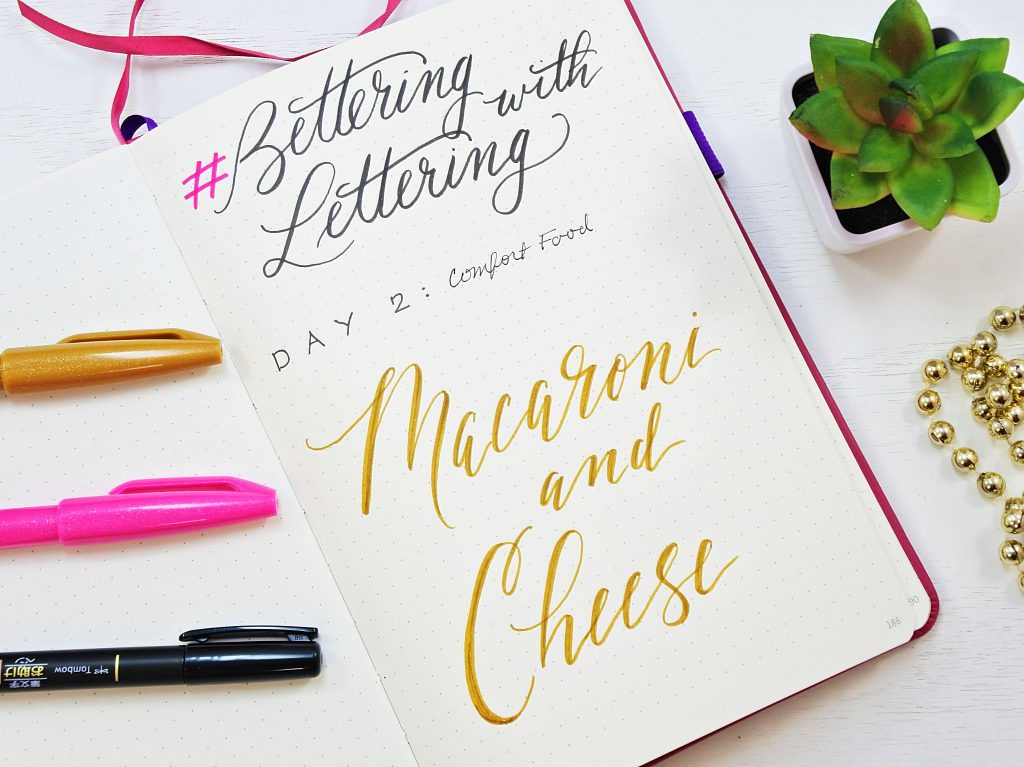 #Bettering with
Lettering
DAY 2: Comfort Food
Macaroni
and
Cheese
90
186
Tombow
筆文字
お助け